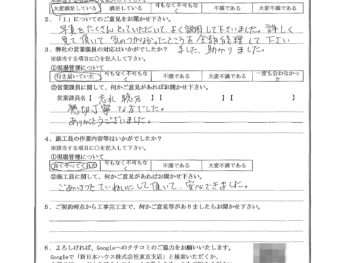 大変満足している 満足している 可もなく不可もなく 不満である 大変不満である
2.「1」についてのご意見をお聞かせ下さい。
写真をたくさんとっていただいて、よく説明して下さいました。詳しく
見て頂いて、気のつかなかったところも全部修理して下さい
ました。助かりました。
3. 弊社の営業課員の対応はいかがでしたか?
※該当する項目に○を記入して下さい。
①現場管理について
行き届いていた 可もなく不可もなく 不満である 大変不満である 一度も会わなかった
②営業課員に関して、何かご意見があればお聞かせ下さい。
営業課員名
懇切丁寧な方でした。
ありがとうございました。
4. 施工員の作業内容等はいかがでしたか?
※該当する項目に○を記入して下さい。
①現場管理について
良くやってくれた 可もなく不可もなく 不満である 大変不満である
②施工員に関して、何かご意見があればお聞かせ下さい。
ごあいさつもていねいにして頂いて、安心できました。
5. ご契約時点から工事完工まで、何かご意見等がありましたらお聞かせ下さい。
6. よろしければ、Googleへのクチコミのご協力をお願いいたします。
Googleで「新日本ハウス株式会社東京支店」と検索いただくか、